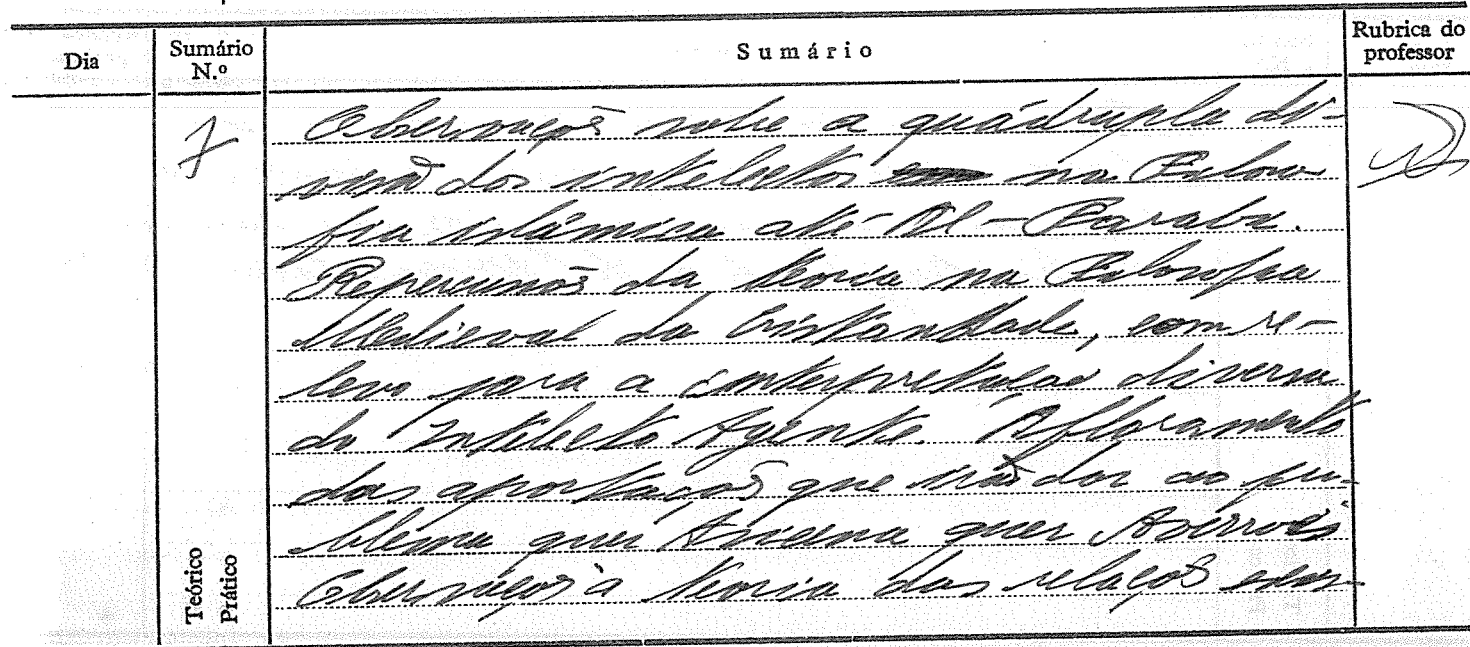 Dia
Sumário N.º
Sumário
Rubrica do professor
7
Observações sobre a quádrupla di-
visão dos intelectos na Filoso
fia islâmica até Al-Farabi.
Repercussões da teoria na Filosofia
Medieval da Cristandade, com re-
levo para a interpretação diversa
do Intelecto Agente. Afloramento
das aportações que irão dar ao pro-
blema quer Avicena quer Averróis
Observações à teoria das relações
Teórico
Prático